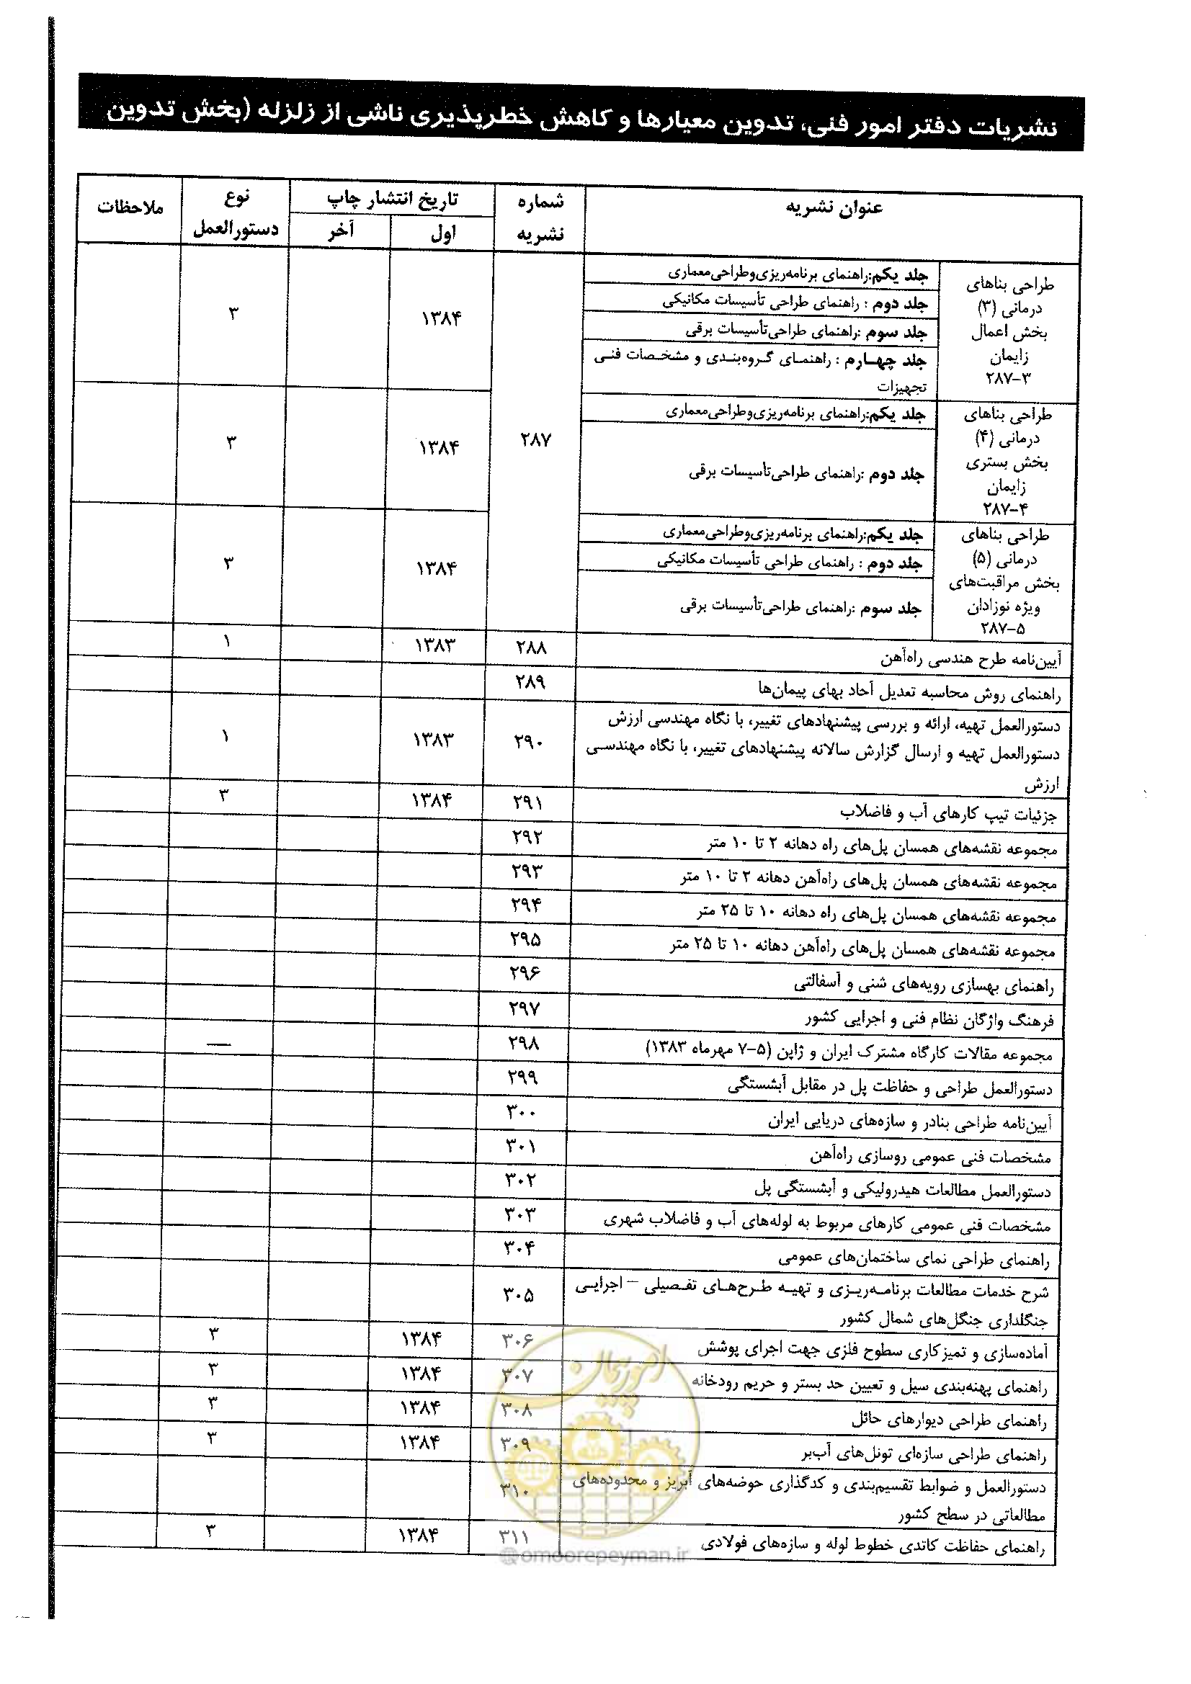 نشریات دفتر امور فنی، تدوین معیارها و کاهش خطرپذیری ناشی از زلزله (بخش تدوین
عنوان نشریه
شماره نشریه
تاریخ انتشار چاپ
اول
آخر
نوع دستورالعمل
ملاحظات
طراحی بناهای
درمانی (۳)
بخش اعمال
زایمان
۲۸۷-۳
جلد یکم:راهنمای برنامه‌ریزی‌وطراحی‌معماری
جلد دوم : راهنمای طراحی تأسیسات مکانیکی
جلد سوم :راهنمای طراحی‌تأسیسات برقی
جلد چهارم : راهنمای گروه‌بندی و مشخصات فنی
تجهیزات
۱۳۸۴
۳
طراحی بناهای
درمانی (۴)
بخش بستری
زایمان
۲۸۷-۴
جلد یکم:راهنمای برنامه‌ریزی‌وطراحی‌معماری
جلد دوم :راهنمای طراحی‌تأسیسات برقی
۲۸۷
۱۳۸۴
۳
طراحی بناهای
درمانی (۵)
بخش مراقبت‌های
ویژه نوزادان
۲۸۷-۵
جلد یکم:راهنمای برنامه‌ریزی‌وطراحی‌معماری
جلد دوم : راهنمای طراحی تأسیسات مکانیکی
جلد سوم :راهنمای طراحی‌تأسیسات برقی
۱۳۸۴
۳
آیین‌نامه طرح هندسی راه‌آهن ۲۸۸ ۱۳۸۳ ۱
راهنمای روش محاسبه تعدیل آحاد بهای پیمان‌ها ۲۸۹
دستورالعمل تهیه، ارائه و بررسی پیشنهادهای تغییر، با نگاه مهندسی ارزش
دستورالعمل تهیه و ارسال گزارش سالانه پیشنهادهای تغییر، با نگاه مهندسی
ارزش
۲۹۰ ۱۳۸۳ ۱
جزئیات تیپ کارهای آب و فاضلاب ۲۹۱ ۱۳۸۴ ۳
مجموعه نقشه‌های همسان پل‌های راه دهانه ۲ تا ۱۰ متر ۲۹۲
مجموعه نقشه‌های همسان پل‌های راه‌آهن دهانه ۲ تا ۱۰ متر ۲۹۳
مجموعه نقشه‌های همسان پل‌های راه دهانه ۱۰ تا ۲۵ متر ۲۹۴
مجموعه نقشه‌های همسان پل‌های راه‌آهن دهانه ۱۰ تا ۲۵ متر ۲۹۵
راهنمای بهسازی رویه‌های شنی و آسفالتی ۲۹۶
فرهنگ واژگان نظام فنی و اجرایی کشور ۲۹۷
مجموعه مقالات کارگاه مشترک ایران و ژاپن (۵-۷ مهرماه ۱۳۸۳) ۲۹۸ —
دستورالعمل طراحی و حفاظت پل در مقابل آبشستگی ۲۹۹
آیین‌نامه طراحی بنادر و سازه‌های دریایی ایران ۳۰۰
مشخصات فنی عمومی روسازی راه‌آهن ۳۰۱
دستورالعمل مطالعات هیدرولیکی و آبشستگی پل ۳۰۲
مشخصات فنی عمومی کارهای مربوط به لوله‌های آب و فاضلاب شهری ۳۰۳
راهنمای طراحی نمای ساختمان‌های عمومی ۳۰۴
شرح خدمات مطالعات برنامه‌ریزی و تهیه طرح‌های تفصیلی – اجرایی
جنگلداری جنگل‌های شمال کشور
۳۰۵
آماده‌سازی و تمیزکاری سطوح فلزی جهت اجرای پوشش ۳۰۶ ۱۳۸۴ ۳
راهنمای پهنه‌بندی سیل و تعیین حد بستر و حریم رودخانه ۳۰۷ ۱۳۸۴ ۳
راهنمای طراحی دیوارهای حائل ۳۰۸ ۱۳۸۴ ۳
راهنمای طراحی سازه‌ای تونل‌های آب‌بر ۳۰۹ ۱۳۸۴ ۳
دستورالعمل و ضوابط تقسیم‌بندی و کدگذاری حوضه‌های آبریز و محدوده‌های
مطالعاتی در سطح کشور
۳۱۰
راهنمای حفاظت کاتدی خطوط لوله و سازه‌های فولادی ۳۱۱ ۱۳۸۴ ۳
امور پیمان
@omoorepeyman.ir